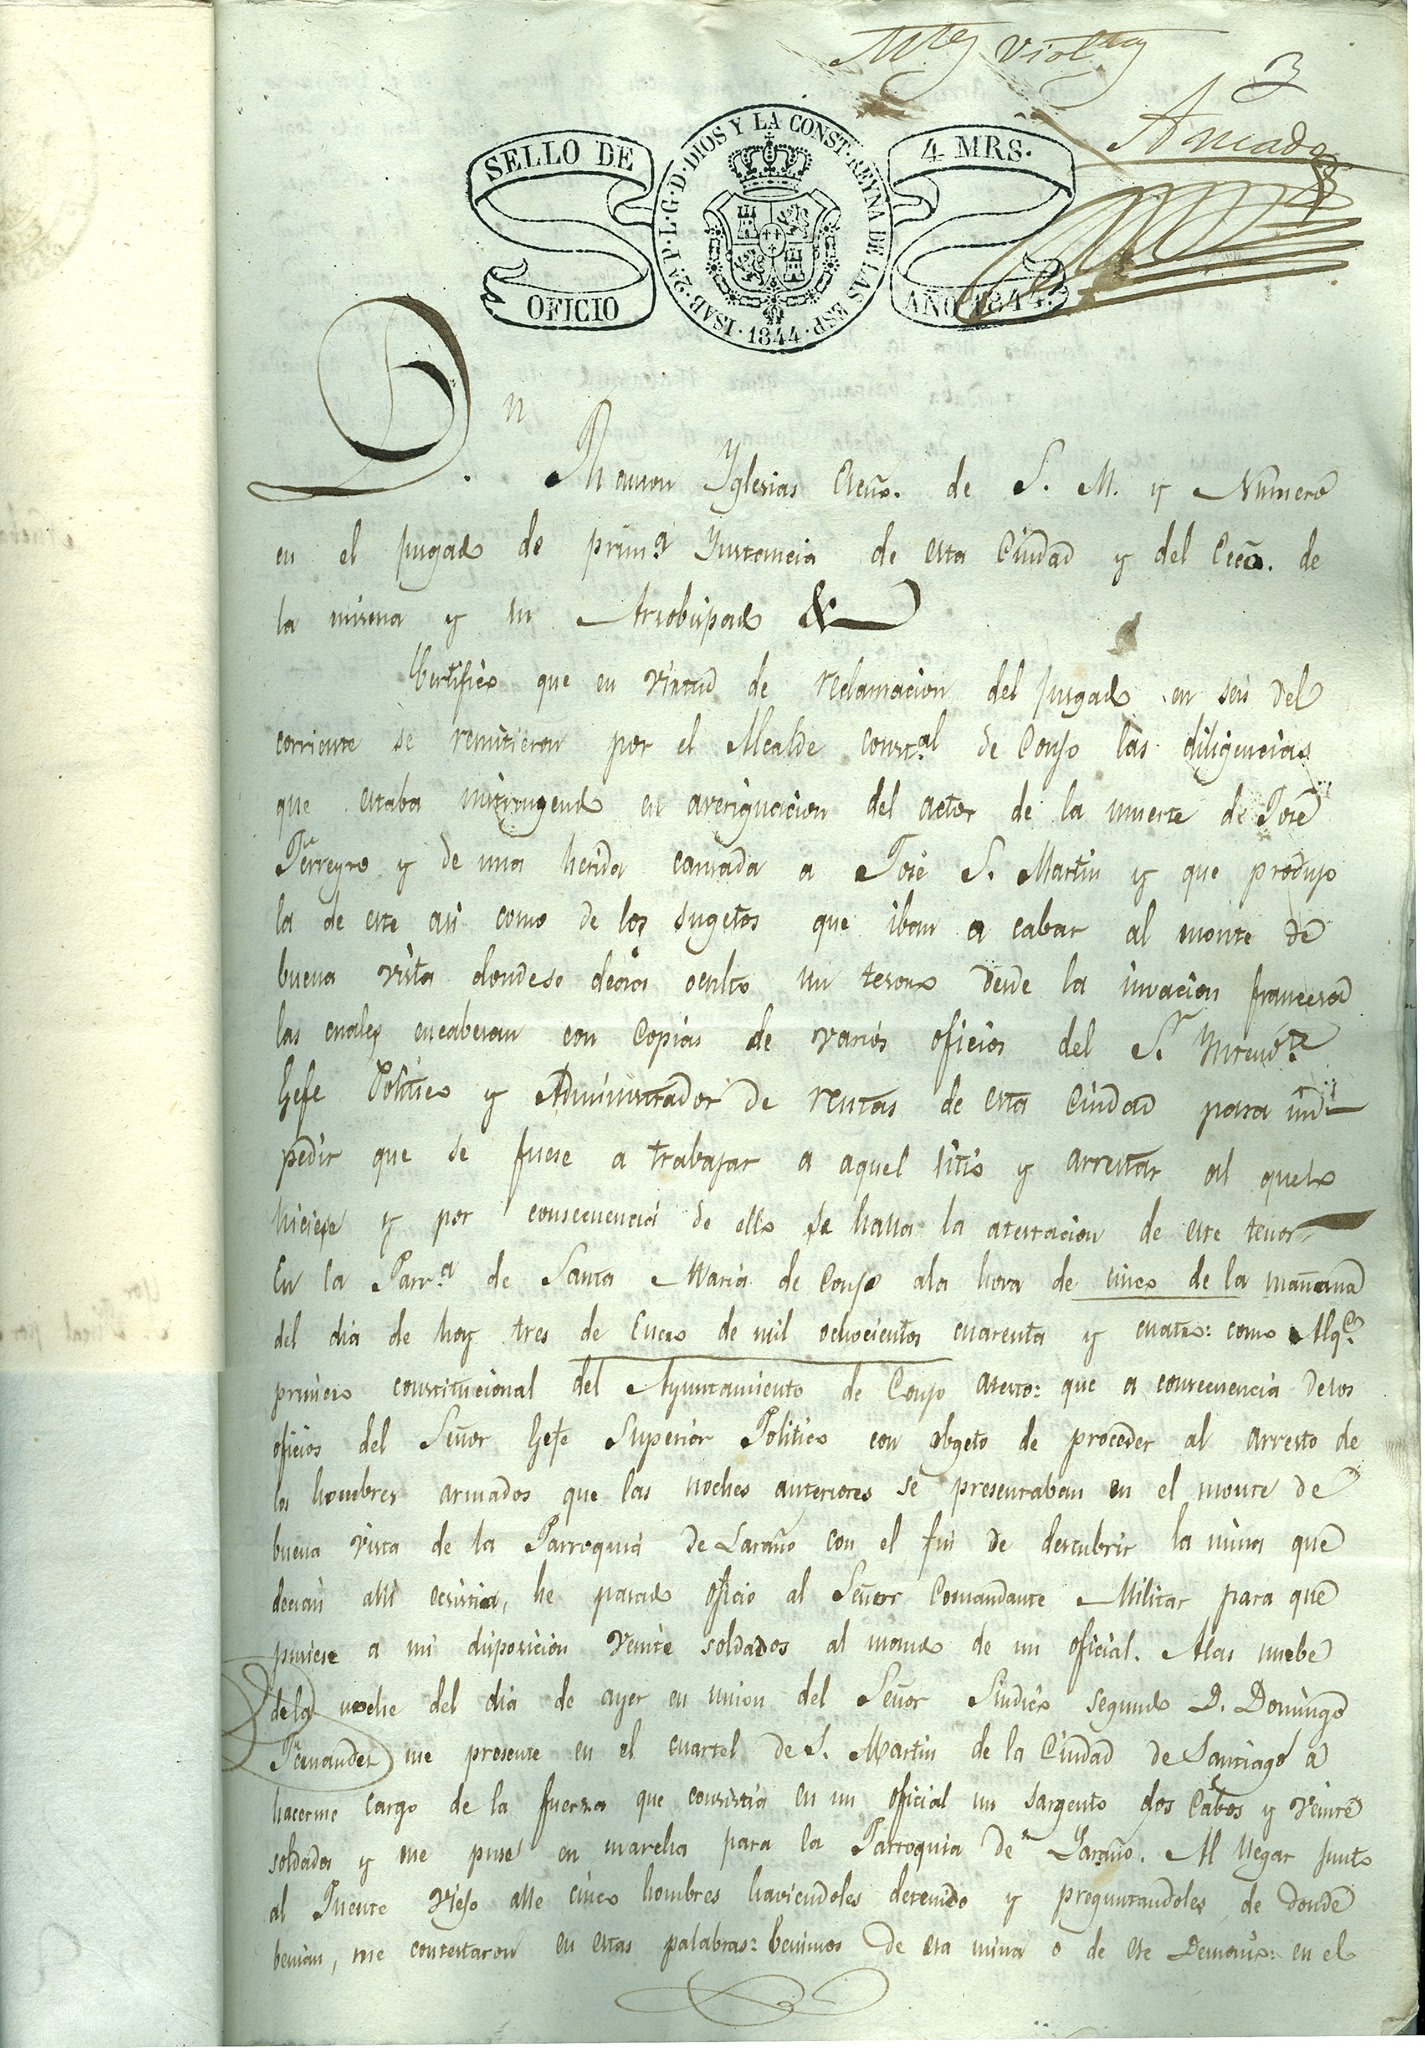 Mtes Violtos
3
Amado
SELLO DE OFICIO
ISAB. 2A P. L. G. D. DIOS Y LA CONST. REYNA DE LAS ESP. 1844
4 MRS. AÑO 1844.
Dn. Ramon Yglesias Escno. de S. M. y Número
en el juzgado de prima Ynstancia de esta Ciudad y del de
la misma y su Arzobispado &
Certifico que en virtud de reclamacion del juzgado en seis del
corriente se remitieron por el Alcalde constal de Conjo las diligencias
que estaba instruyendo en averiguacion del actor de la muerte de José
Ferreyro y de una herida causada a José S. Martin y que produjo
la de este asi como de los sugetos que iban a cabar al monte de
buena vista donde se decia oculto un tesoro desde la invacion francesa
las cuales encabezan con Copias de varios oficios del Sr. Yntende
Gefe Político y Administrador de rentas de esta Ciudad para im-
pedir que se fuese a trabajar a aquel sitio y arrestar al que lo
hiciese y por consecuencia de ello se halla la atestacion de este tenor
En la Parra de Santa Maria de Conjo ala hora de cinco de la mañana
del dia de hoy tres de Enero de mil ochocientos cuarenta y cuatro: como Alqe
primero constitucional del Ayuntamiento de Conjo atesto: que a consecuencia delos
oficios del Señor Gefe Superior Politico con obgeto de proceder al arresto de
los hombres armados que las noches anteriores se presentaban en el monte de
buena vista de la Parroquia de Laraño con el fin de descubrir la mina que
decian alli ecsistia, he pasado oficio al Señor Comandante Militar para que
pusiese a mi disposicion veinte soldados al mando de un oficial. Alas nuebe
dela noche del dia de ayer en union del Señor Sindico segundo D. Domingo
Fernandez me presente en el cuartel de S. Martin de la Ciudad de Santiago a
hacerme cargo de la fuerza que consistia en un oficial un sargento dos Cabos y veinte
soldados y me puse en marcha para la Parroquia de Laraño. Al llegar junto
al Puente viejo alle cinco hombres haviendoles detenido y preguntandoles de donde
benian, me contestaron en estas palabras: benimos de esa mina o de ese Demonio: en el